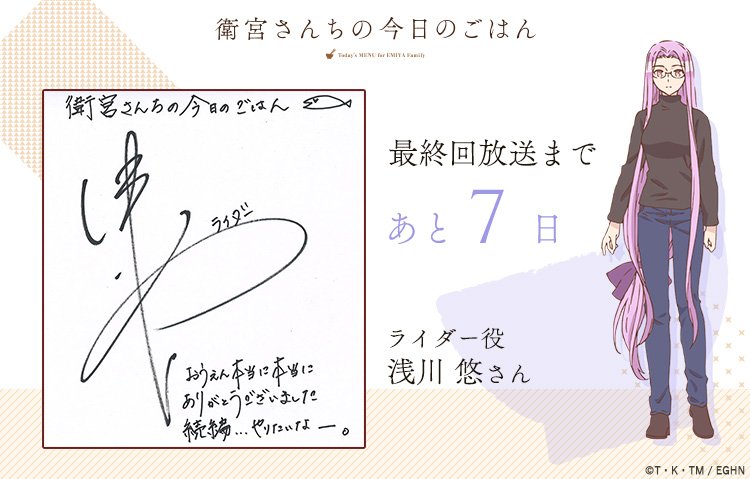 衛宮さんちの今日のごはん
Today's MENU for EMIYA Family
衛宮さんちの今日のごはん
ライダー
おうえん本当に本当に
ありがとうございました
続編…やりたいなー。
最終回放送まで
あと7日
ライダー役
浅川 悠さん
©T・K・TM / EGHN